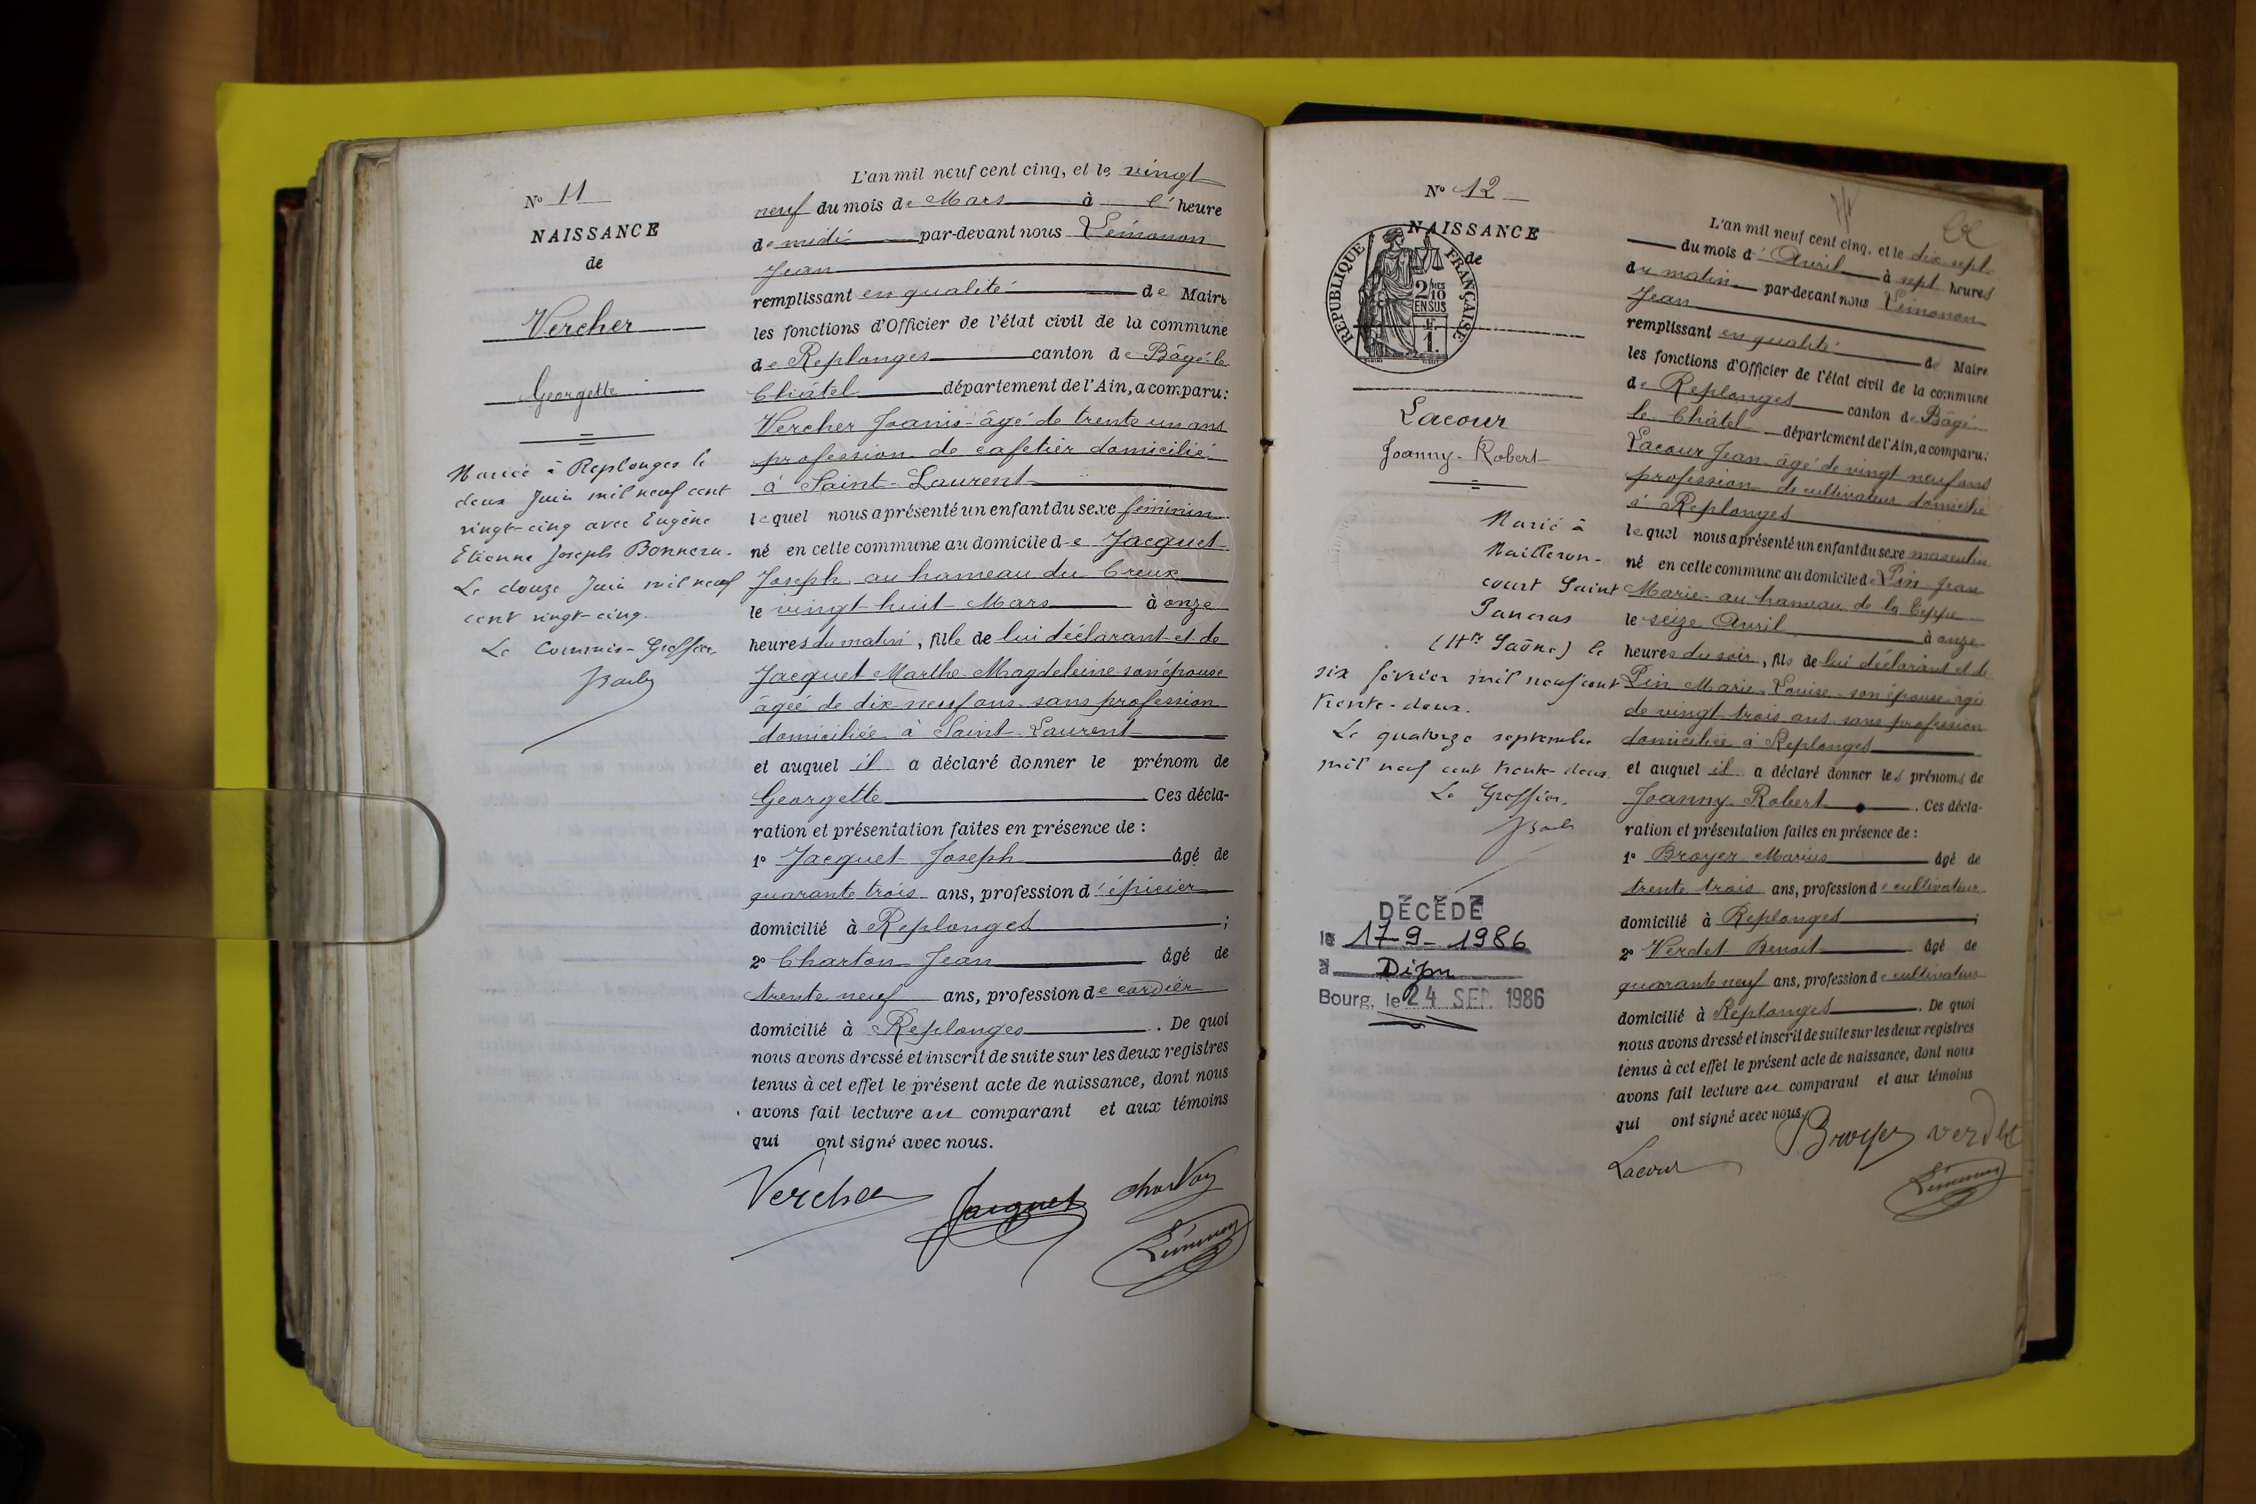 No 11
NAISSANCE
de
Vercher
Georgette
Mariée à Replonges le
deux Juin mil neuf cent
vingt-cinq avec Eugène
Etienne Joseph
Le douze Juin mil neuf
cent vingt-cinq.
Le Commis-Greffier
L'an mil neuf cent cinq, et le vingt
neuf du mois de Mars à l'heure
de midi par-devant nous Lémonon
Jean
remplissant en qualité de Maire
les fonctions d'Officier de l'état civil de la commune
de Replonges canton de Bâgé-le
Châtel département de l'Ain, a comparu:
Vercher Joanis âgé de trente un ans
profession de cafetier domicilié
à Saint-Laurent
lequel nous a présenté un enfant du sexe féminin
né en cette commune au domicile de Jacquet
Joseph au hameau du Creux
le vingt huit Mars à onze
heures du matin, fille de lui déclarant et de
Jacquet Marthe Magdeleine son épouse
âgée de dix neuf ans sans profession
domiciliée à Saint-Laurent
et auquel il a déclaré donner le prénom de
Georgette Ces décla-
ration et présentation faites en présence de :
1o Jacquet Joseph âgé de
quarante trois ans, profession d'épicier
domicilié à Replonges ;
2o Charton Jean âgé de
trente neuf ans, profession de cordier
domicilié à Replonges . De quoi
nous avons dressé et inscrit de suite sur les deux registres
tenus à cet effet le présent acte de naissance, dont nous
avons fait lecture au comparant et aux témoins
qui ont signé avec nous.
Vercher Jacquet Charton
Lémonon
No 12
NAISSANCE
de
REPUBLIQUE FRANÇAISE
2/10 MES
EN SUS
F.
1.
Lacour
Joanny-Robert
Marié à
Mailleron-
court Saint
Pancras
(Hte Saône) le
six février mil neuf cent
trente-deux.
Le quatorze septembre
mil neuf cent trente-deux.
Le Greffier.
DÉCÉDÉ
le 17-9-1986
à Dijon
Bourg, le 24 SEP. 1986
L'an mil neuf cent cinq, et le dix sept
du mois d'Avril à sept heures
du matin par-devant nous Lémonon
Jean
remplissant en qualité de Maire
les fonctions d'Officier de l'état civil de la commune
de Replonges canton de Bâgé
le Châtel département de l'Ain, a comparu:
Lacour Jean âgé de vingt neuf ans
profession de cultivateur domicilié
à Replonges
lequel nous a présenté un enfant du sexe masculin
né en cette commune au domicile de Pin Jean
Marie au hameau de la Ceppe
le seize Avril à onze
heures du soir, fils de lui déclarant et de
Pin Marie Louise son épouse âgée
de vingt trois ans sans profession
domiciliée à Replonges
et auquel il a déclaré donner les prénoms de
Joanny Robert . Ces décla-
ration et présentation faites en présence de :
1o Broyer Marius âgé de
trente trois ans, profession de cultivateur
domicilié à Replonges ;
2o Verdet Benoit âgé de
quarante neuf ans, profession de cultivateur
domicilié à Replonges . De quoi
nous avons dressé et inscrit de suite sur les deux registres
tenus à cet effet le présent acte de naissance, dont nous
avons fait lecture au comparant et aux témoins
qui ont signé avec nous.
Broyer Verdet
Lacour
Lémonon